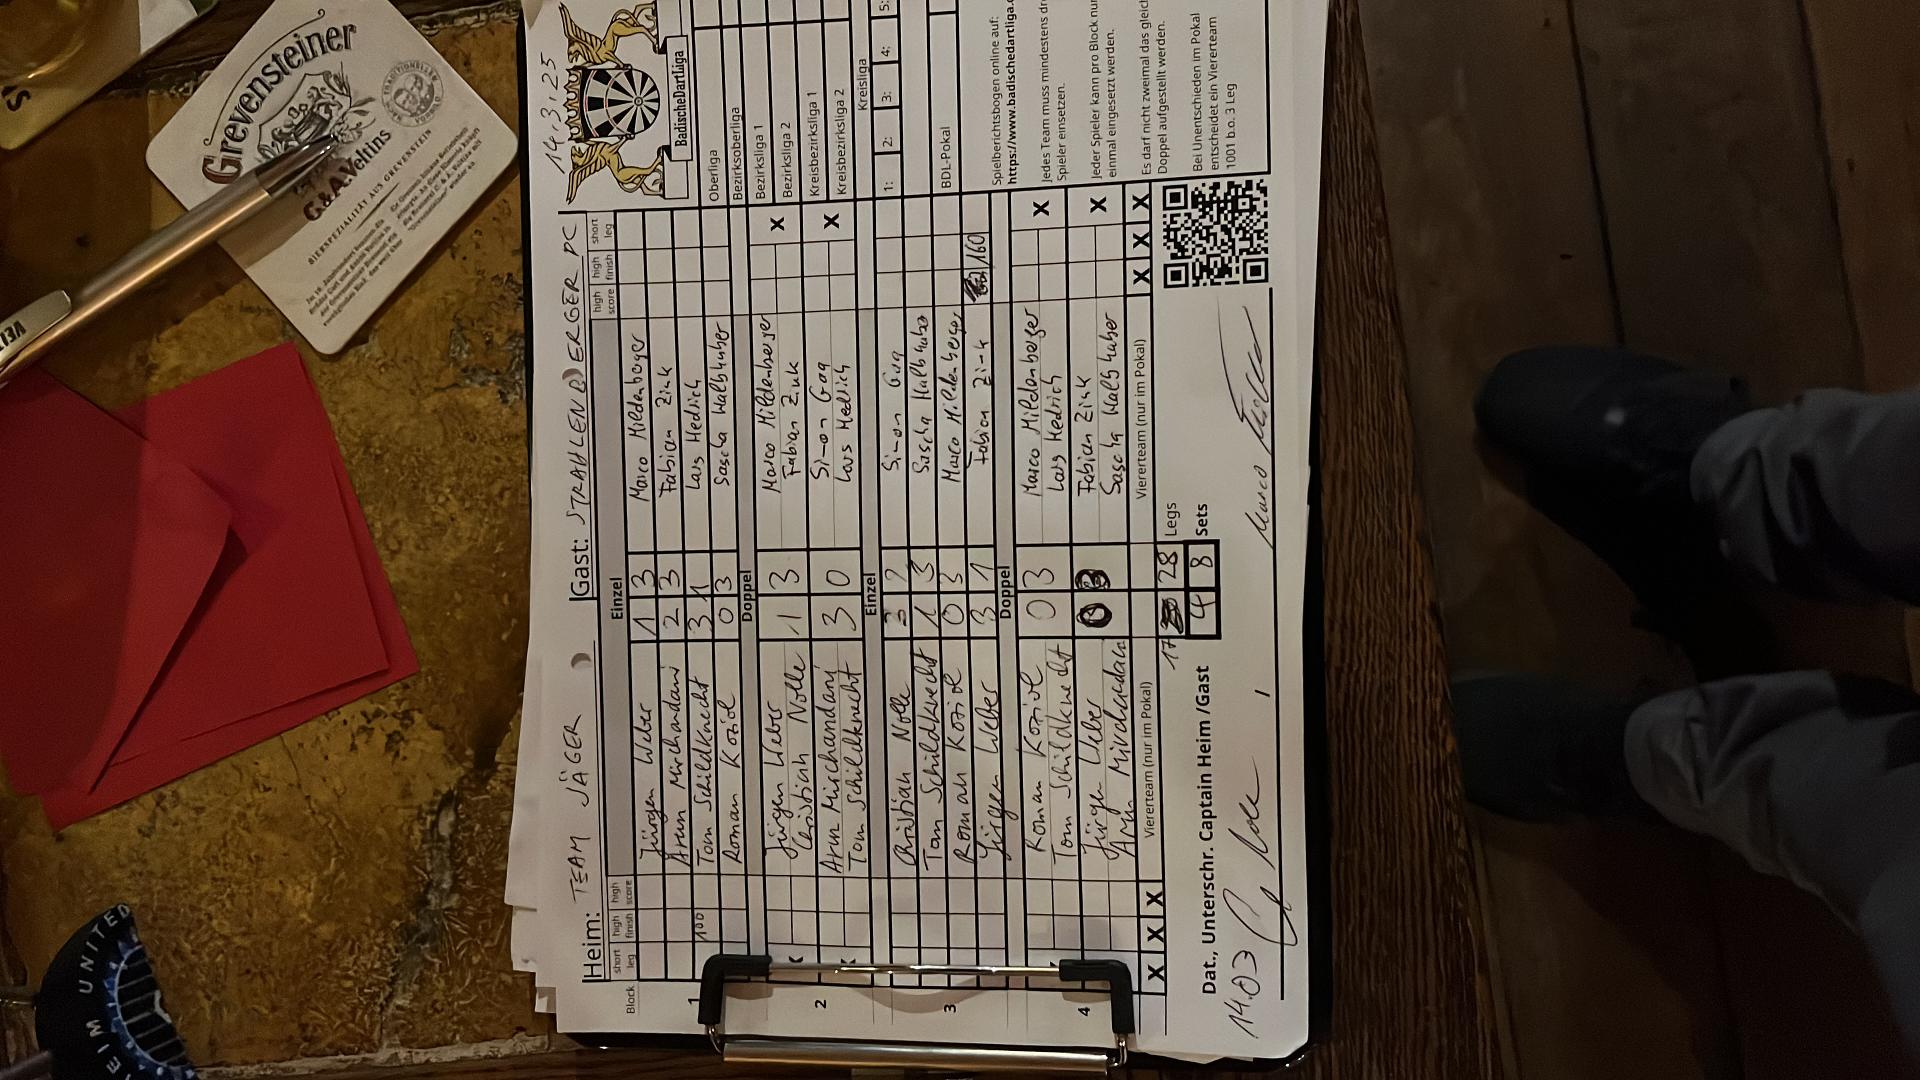 14.3.25
Heim: TEAM JÄGER
Gast: STRAHLENBERGER DC
BadischeDartLiga
Block
short leg
high finish
high score
Einzel
high score
high finish
short leg
1
Jürgen Weber 1 3 Marco Hildenberger
Arun Mirchandani 2 3 Fabian Zink
100 Tom Schildknecht 3 1 Lars Hedrich
Roman Koziol 0 3 Sascha Halbhuber
Doppel
2
Jürgen Weber 1 3 Marco Hildenberger X
Christian Nolle Fabian Zink
Arun Mirchandani 3 0 Simon Gag X
Tom Schildknecht Lars Hedrich
Einzel
3
Christian Nolle 3 2 Simon Gag
Tom Schildknecht 1 3 Sascha Halbhuber
Roman Koziol 0 3 Marco Hildenberger
Jürgen Weber 3 1 Fabian Zink 160
Doppel
4
Roman Koziol 0 3 Marco Hildenberger X
Tom Schildknecht Lars Hedrich
Jürgen Weber 0 3 Fabian Zink X
Arun Mirchandani Sascha Halbhuber
X X X Viererteam (nur im Pokal) Viererteam (nur im Pokal) X X X
17 28 Legs
4 8 Sets
Dat., Unterschr. Captain Heim /Gast
14.03
Oberliga
Bezirksoberliga
Bezirksliga 1
Bezirksliga 2
Kreisbezirksliga 1
Kreisbezirksliga 2
Kreisliga
1: 2: 3: 4: 5:
BDL-Pokal
Spielberichtsbogen online auf:
https://www.badischedartliga.
Jedes Team muss mindestens
Spieler einsetzen.
Jeder Spieler kann pro Block
einmal eingesetzt werden.
Es darf nicht zweimal das
Doppel aufgestellt werden.
Bei Unentschieden im Pokal
entscheidet ein Viererteam
1001 b.o. 3 Leg
Grevensteiner
C.& A. Veltins
BIERSPEZIALITÄT AUS GREVENSTEIN
UNITED